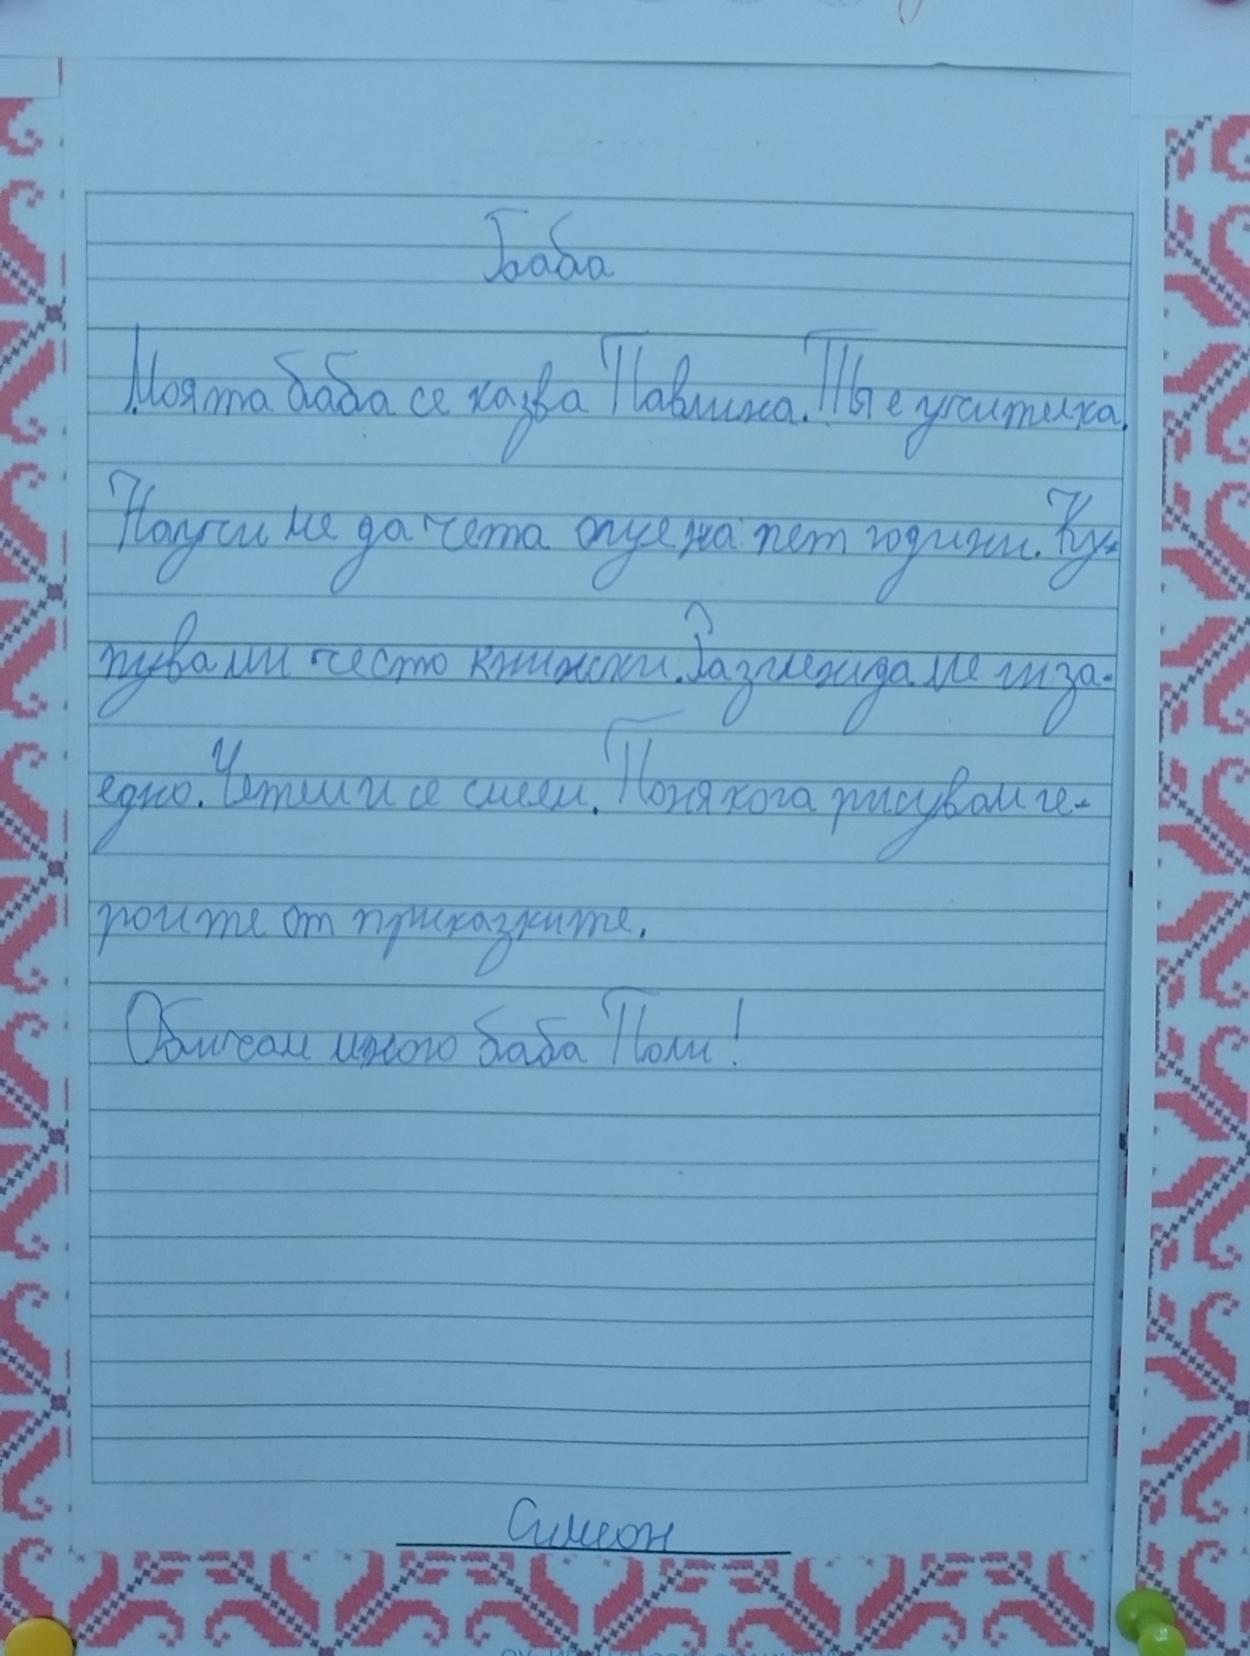 Баба
Моята баба се казва Павлина. Тя е учителка.
Научи ме да чета още на пет години. Ку-
пува ми често книжки. Разглеждаме ги за-
едно. Четем и се смеем. Понякога рисувам ге-
роите от приказките.
Обичам много баба Поли!
Симеон